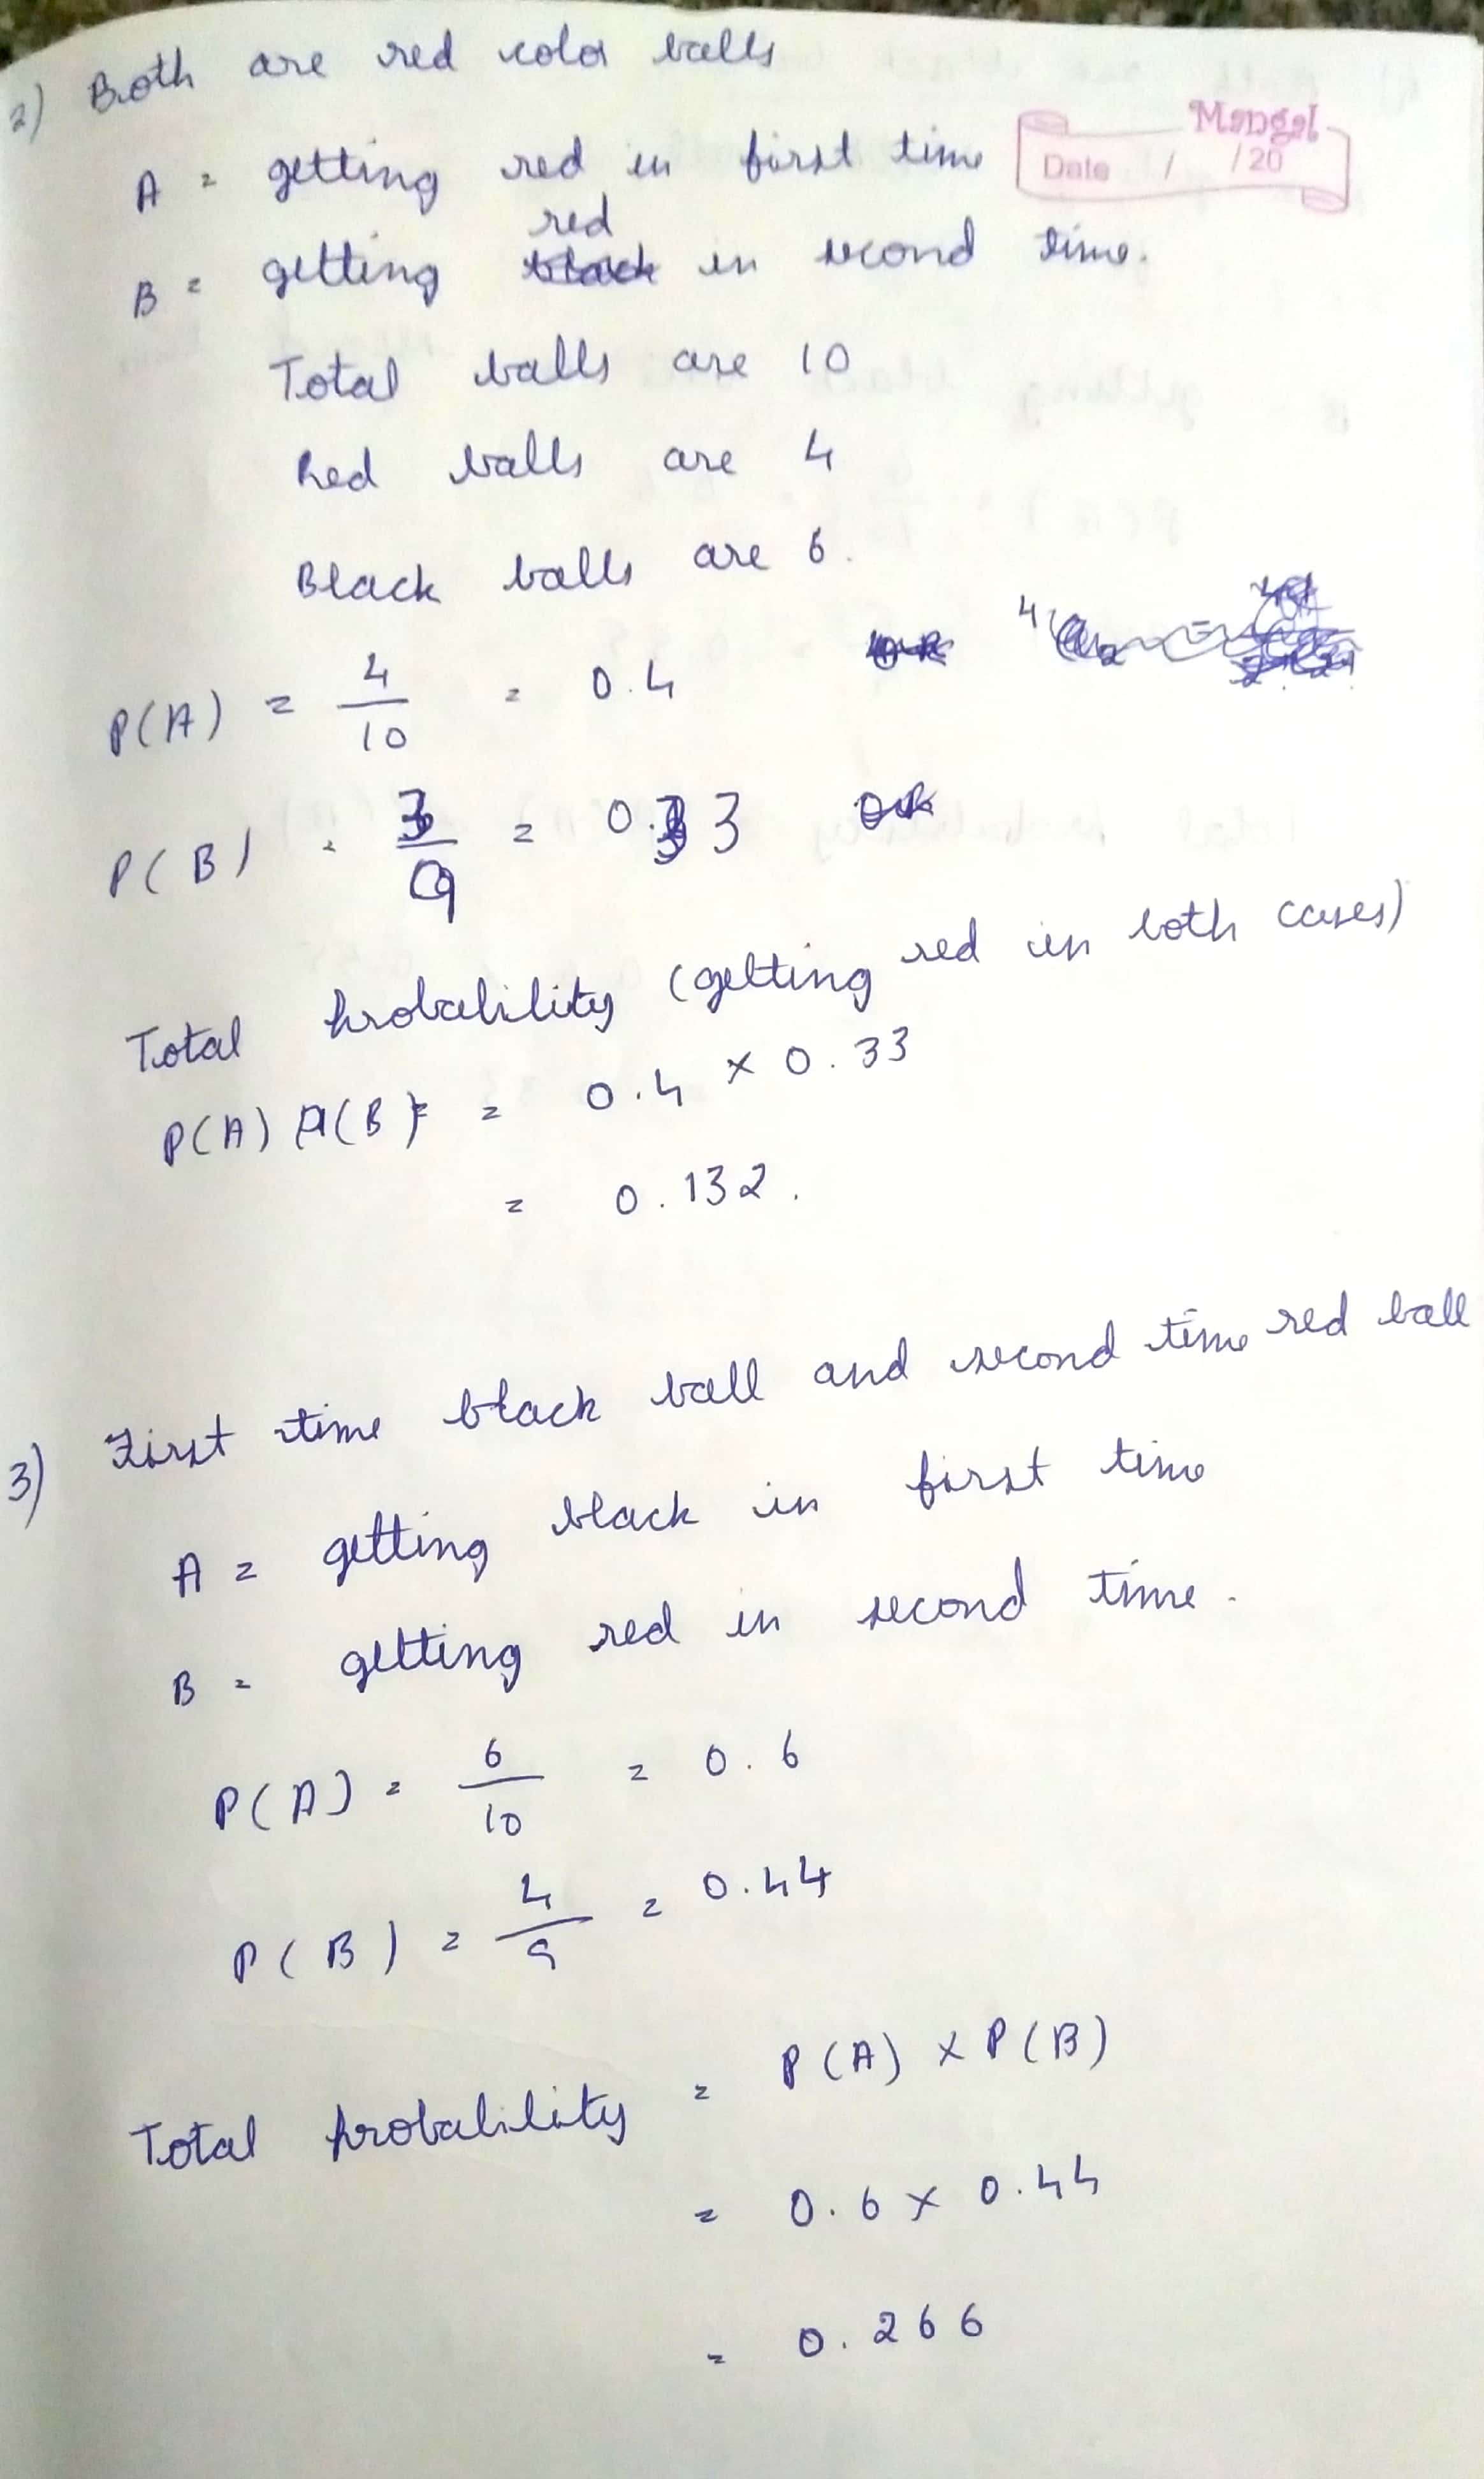 2) Both are red color balls
Mangal
Date / /20
A = getting red in first time
red
B = getting black in second time.
Total balls are 10
Red balls are 4
Black balls are 6.
P(A) = 4/10 = 0.4
P(B) = 3/9 = 0.33
Total probability (getting red in both cases)
P(A) P(B) = 0.4 × 0.33
= 0.132.
3) First time black ball and second time red ball
A = getting black in first time
B = getting red in second time.
P(A) = 6/10 = 0.6
P(B) = 4/9 = 0.44
Total probability = P(A) × P(B)
= 0.6 × 0.44
= 0.266